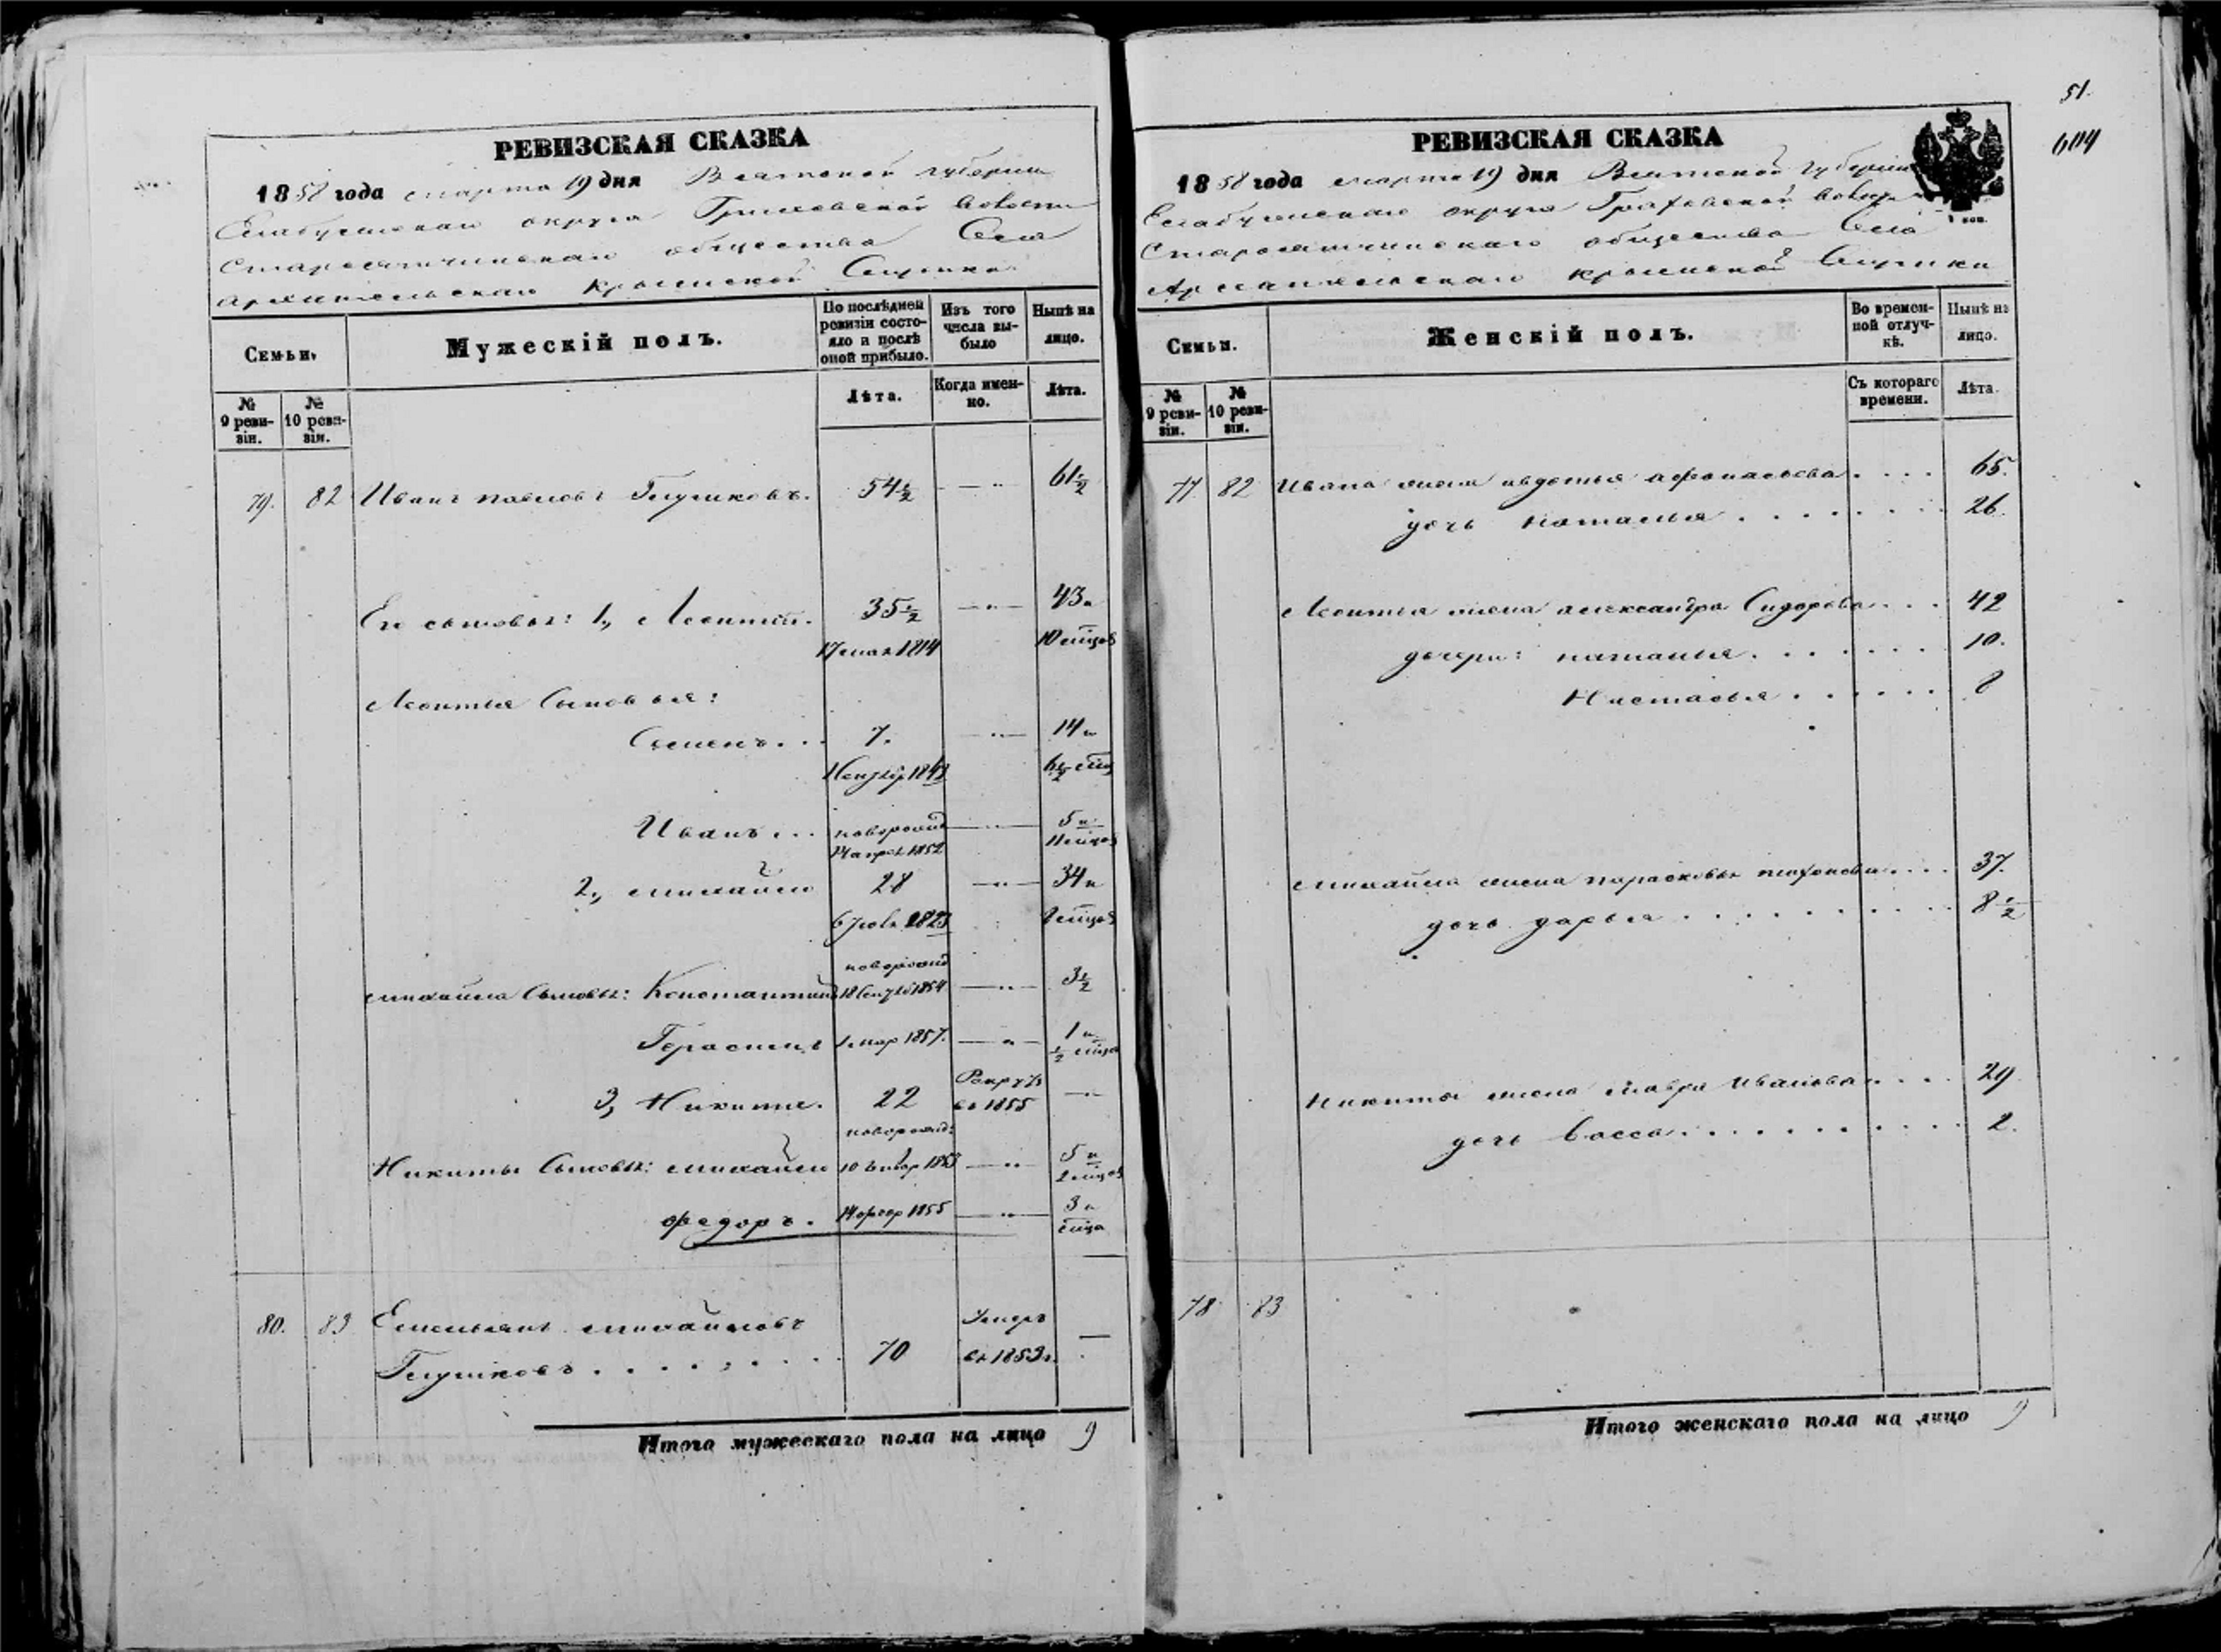 РЕВИЗСКАЯ СКАЗКА
1858 года марта 19 дня Вятской губернии
Елабужскаго округа волости
общества Села
Крымской Слудки
Семьи.
Мужескій полъ.
По послѣдней ревизіи состояло и послѣ оной прибыло.
Изъ того числа выбыло
Нынѣ на лицо.
№ 9 ревизіи.
№ 10 ревизіи.
Лѣта.
Когда именно.
Лѣта.
79. 82 Иванъ Павловъ Глушковъ. 54½ — " 61½
Его сыновья: 1, Леонтій. 35½ — " — 43 и
17 мая 1814 10 мѣцов
Леонтья Сыновья:
Семенъ... 7. — " — 14 и
1843 6½ мѣц
Иванъ... новорожд — " — 5 и
14 апрѣ 1852 11 мѣцов
2, Михайло 28 — " — 34 и
1823 мѣцов
новорожд
Михайла Сыновья: Константинъ 18 1854 — " — 3½
Герасимъ 1 мар 1857. — " — 1 и
½ мѣца
3, Никита. 22 Рекрут. въ 1855 — "
новорожд:
Никиты Сыновья: Михайло 10 Январ 1853 — " 5 и
2 мѣцов
Федоръ. 14 февр 1855 — " — 3 и
мѣца
80. 83 Емельянъ Михайловъ Умеръ
Глушковъ . . . . . . . 70 въ 1853 г. —
Итого мужескаго пола на лицо 9
51.
604
РЕВИЗСКАЯ СКАЗКА
1858 года марта 19 дня Вятской Губерніи
Елабужскаго округа волости
общества Села
Крымской Слудки
Семьи.
Женскій полъ.
Во временной отлучкѣ.
Нынѣ на лицо.
№ 9 ревизіи.
№ 10 ревизіи.
Съ котораго времени.
Лѣта.
77 82 Ивана жена Авдотья Афонасьева . . . . 65.
дочь Наталья . . . . . . . . 26.
Леонтья жена Александра Сидорова . . . 42
дочери: Наталья . . . . . . . 10.
Настасья . . . . . . 8
Михайла жена Парасковья . . . . 37.
дочь Дарья . . . . . . . . . . 8½
Никиты жена Мавра Иванова . . . . 29
дочь Васса . . . . . . . . . . 2.
78. 83
Итого женскаго пола на лицо 9